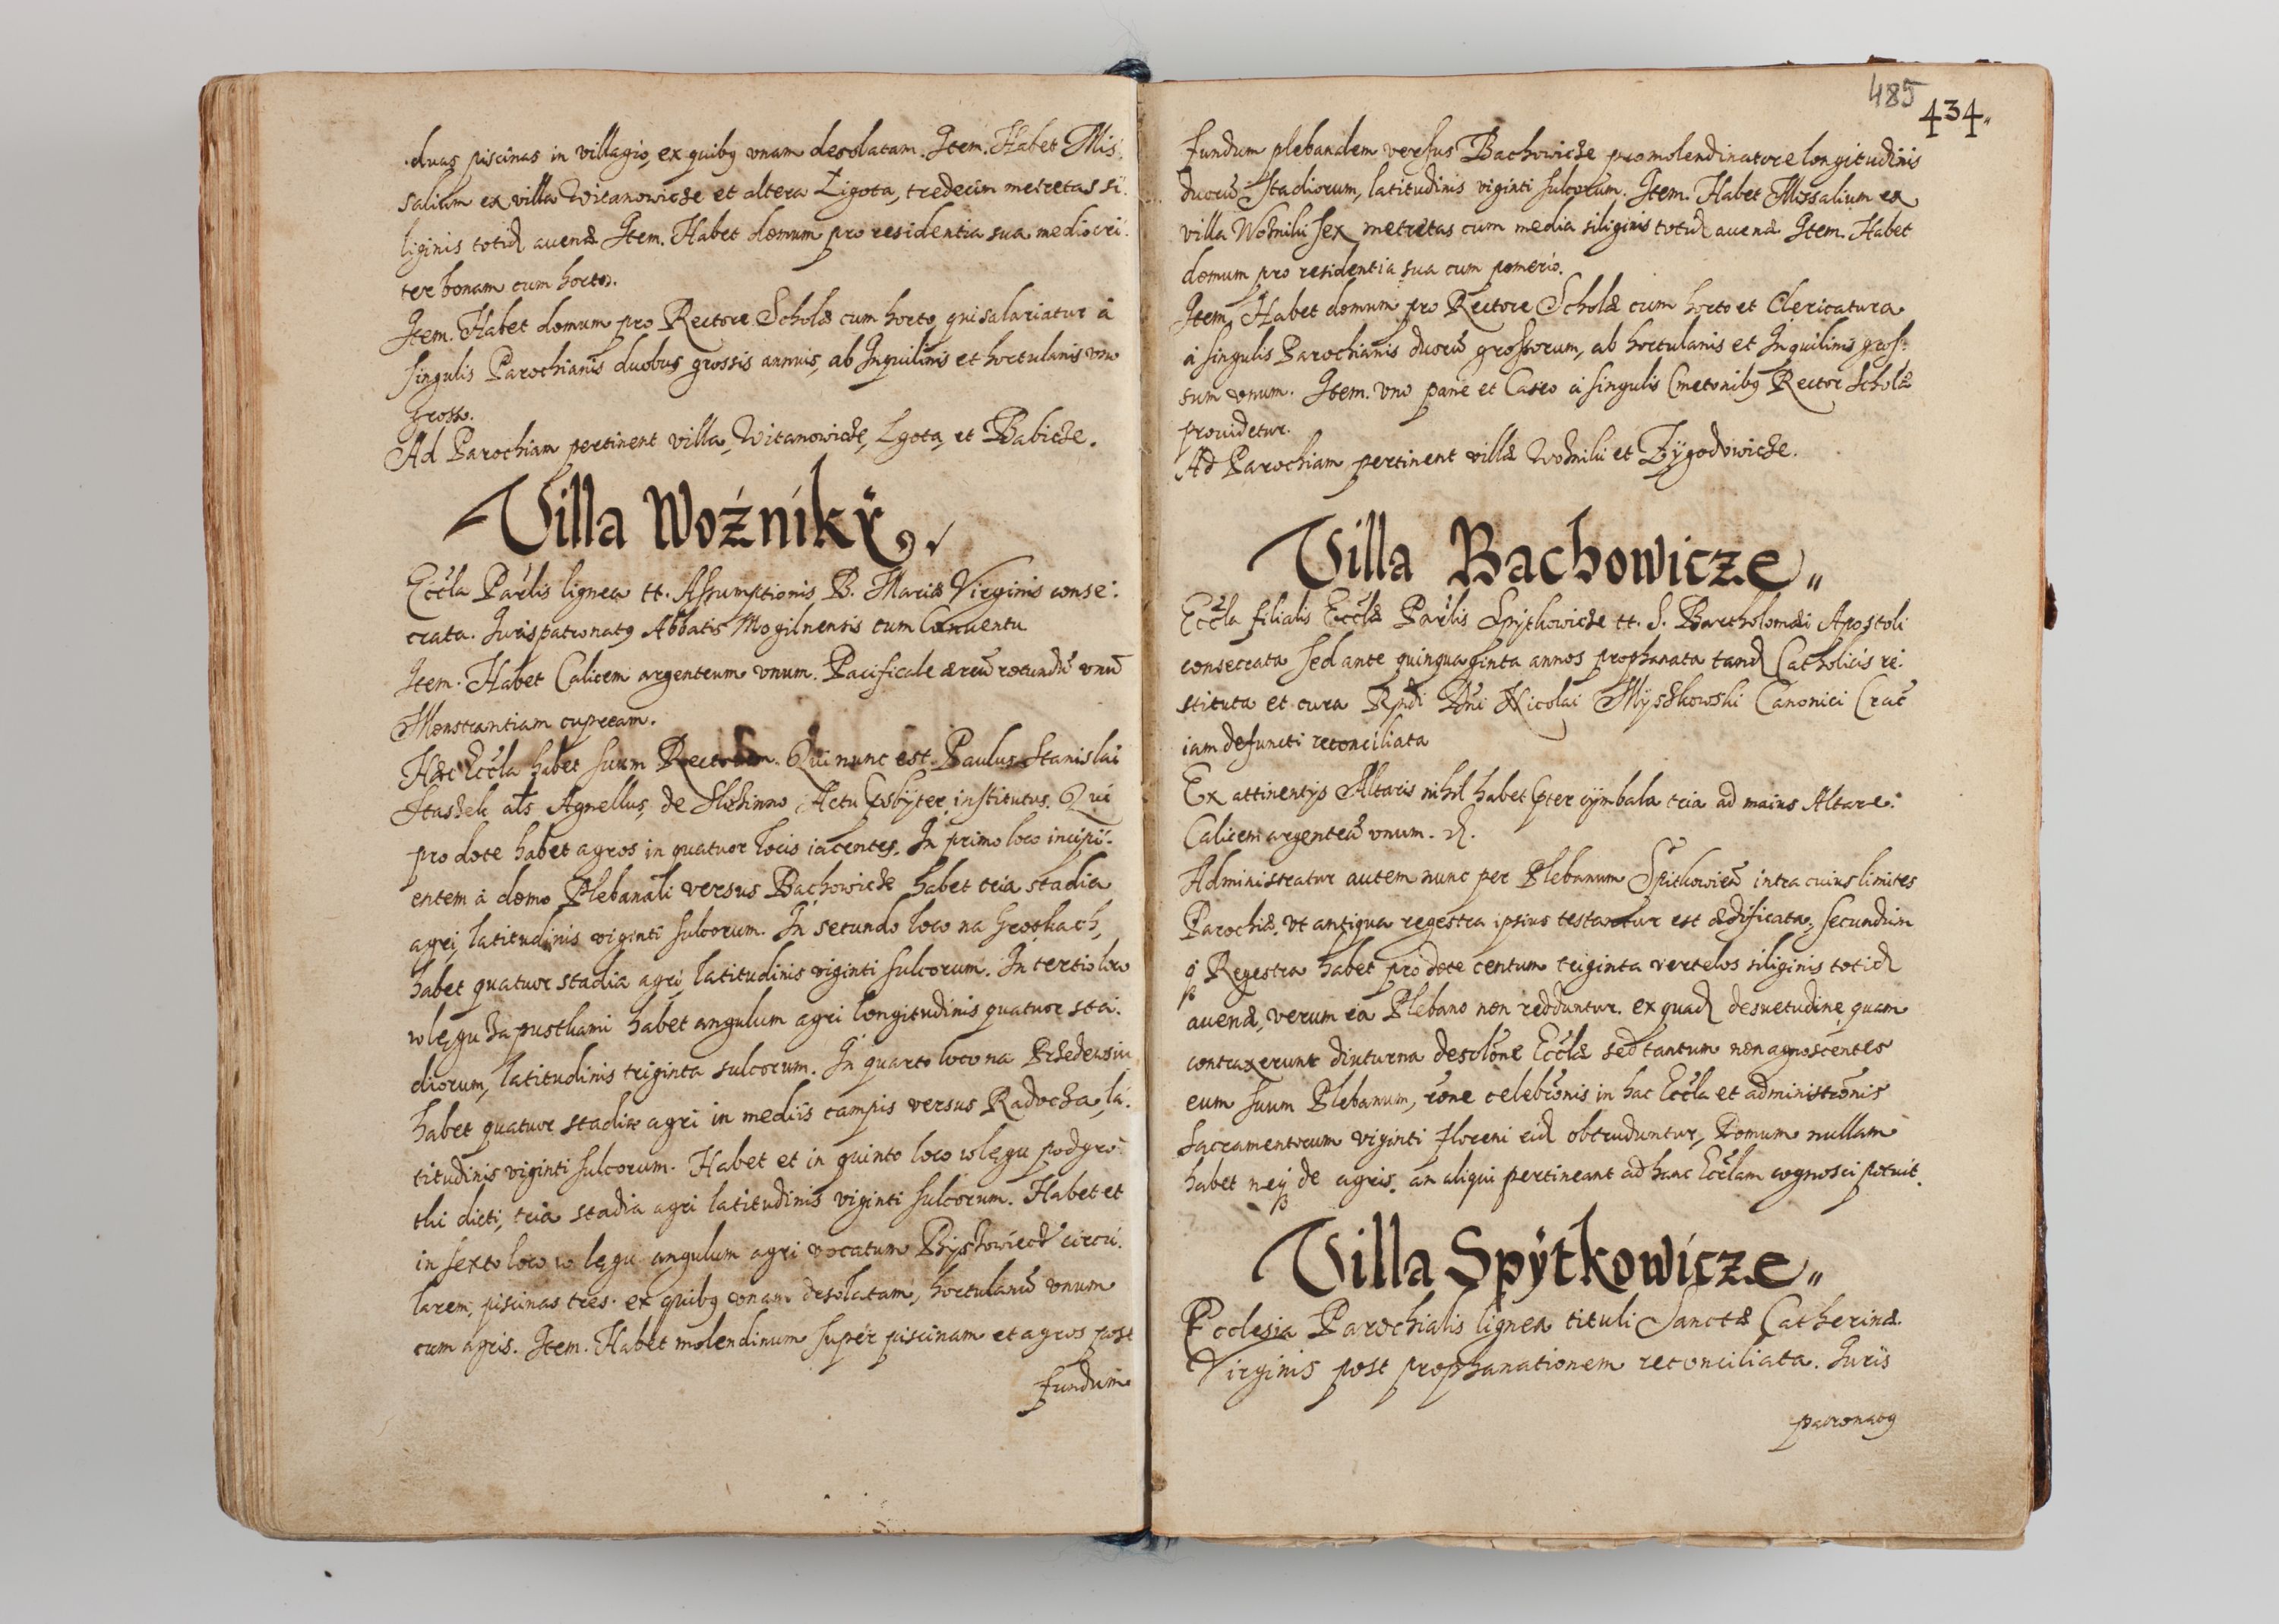 duas piscinas in villagio, ex quibꝫ vnam desolatam. Item. Habet Mis:
salium ex villa Witanowicze et altera Ligota, tredecim metretas si:
liginis totidẽ auenæ Item. Habet domum pro residentia sua mediocri:
ter bonam cum horto.
Item. Habet domum pro Rectore Scholæ cum horto qui salariatur à
singulis Parochianis duobus grossis annuis, ab Inquilinis et hortulanis vno
grosso.
Ad Parochiam pertinent villa, Witanowicze, Lgota, et Babicze.
Villa Woźnikÿ
Eccła Parłis lignea tt. Assumptionis B. Mariæ Virginis conse:
crata. Jurispatronatꝫ Abbatis Mogilnensis cum Conuentu
Item. Habet Calicem argenteum vnum. Pacificale æreũ rotundũ vnũ
Monstrantiam cupream.
Hæc Eccła habet suum Rectorem. Qui nunc est. Paulus Stanislai
Staszek als Agnellus, de Slo̅hinno Actu Pr̃sbÿter institutus. Qui
pro dote habet agros in quatuor locis iacentes. In primo loco incipi:
entem à domo Plebanali versus Bachowicze habet tria stadia
agri, latitudinis viginti sulcorum. In secundo loco na Grotkach,
habet quatuor stadia agri, latitudinis viginti sulcorum. In tertio loco
w lęgu za pustkami habet angulum agri longitudinis quatuor sta:
diorum, latitudinis triginta sulcorum. In quarto loco na
habet quatuor stadia agri in mediis campis versus Radocza, la:
titudinis viginti sulcorum. Habet et in quinto loco w lęgu podgro:
tki dicti, tria stadia agri latitudinis viginti sulcorum. Habet et
in sexto loco w lęgu angulum agri vocatum circu:
larem, piscinas tres. ex quibꝫ vnam desolatam, hortulanũ vnum
cum agris. Item. Habet molendinum super piscinam et agros post
fundum
485
434
fundum plebanalem versus Bachowicze pro molendinatore longitudinis
duorũ Stadiorum, latitudinis viginti sulcorum. Item. Habet Missalium ex
villa Woźniki sex metretas cum media siliginis totidẽ auenæ Item. Habet
domum pro residentia sua cum pomerio.
Item. Habet domum pro Rectore Scholæ cum horto et Clericatura
à singulis Parochianis duorũ grossorum, ab hortulanis et Inquilinis gros:
sum vnum. Item. vno pane et Caseo à singulis Cmetonibꝫ Rector Scholæ
prouidetur.
Ad Parochiam pertinent villæ Woźniki et Zÿgodowicze.
Villa Bachowicze
Eccła filialis Eccłæ Parłis Spÿtkowicze tt. S. Bartholomæi Apostoli
consecrata sed ante quinquaginta annos prophanata tandẽ Catholicis re:
stituta et cura Rñdi Dñi Nicolai Mÿszkowski Canonici Crac̃
iam defuncti reconciliata
Ex attinentÿs Altaris nihil habet p̃ter cÿmbala tria ad maius Altare:
Calicem argenteũ vnum.
Administratur autem nunc per Plebanum Spitkowicen̄ intra cuius limites
Parochiæ, vt antiqua regestra ipsius testantur est ædificata, secundum
q̃ Regestra habet pro dote centum triginta vertelos siliginis totidẽ
auenæ, verum ea Plebano non redduntur. ex quadã desuetudine quam
contraxerunt diuturna desolõne Eccłæ sed tantum non agnoscentes
eum suum Plebanum, rõne celebrõnis in hac Eccła et administrõnis
Sacramentorum viginti floreni eidẽ obtruduntur, Domum nullam
habet neqꝫ de agris, an aliqui pertineant ad hanc Eccłam cognosci potuit.
Villa Spÿtkowicze
Ecclesia Parochialis lignea tituli Sanctæ Catherinæ
Virginis post prophanationem reconciliata. Juris
patronatꝫ